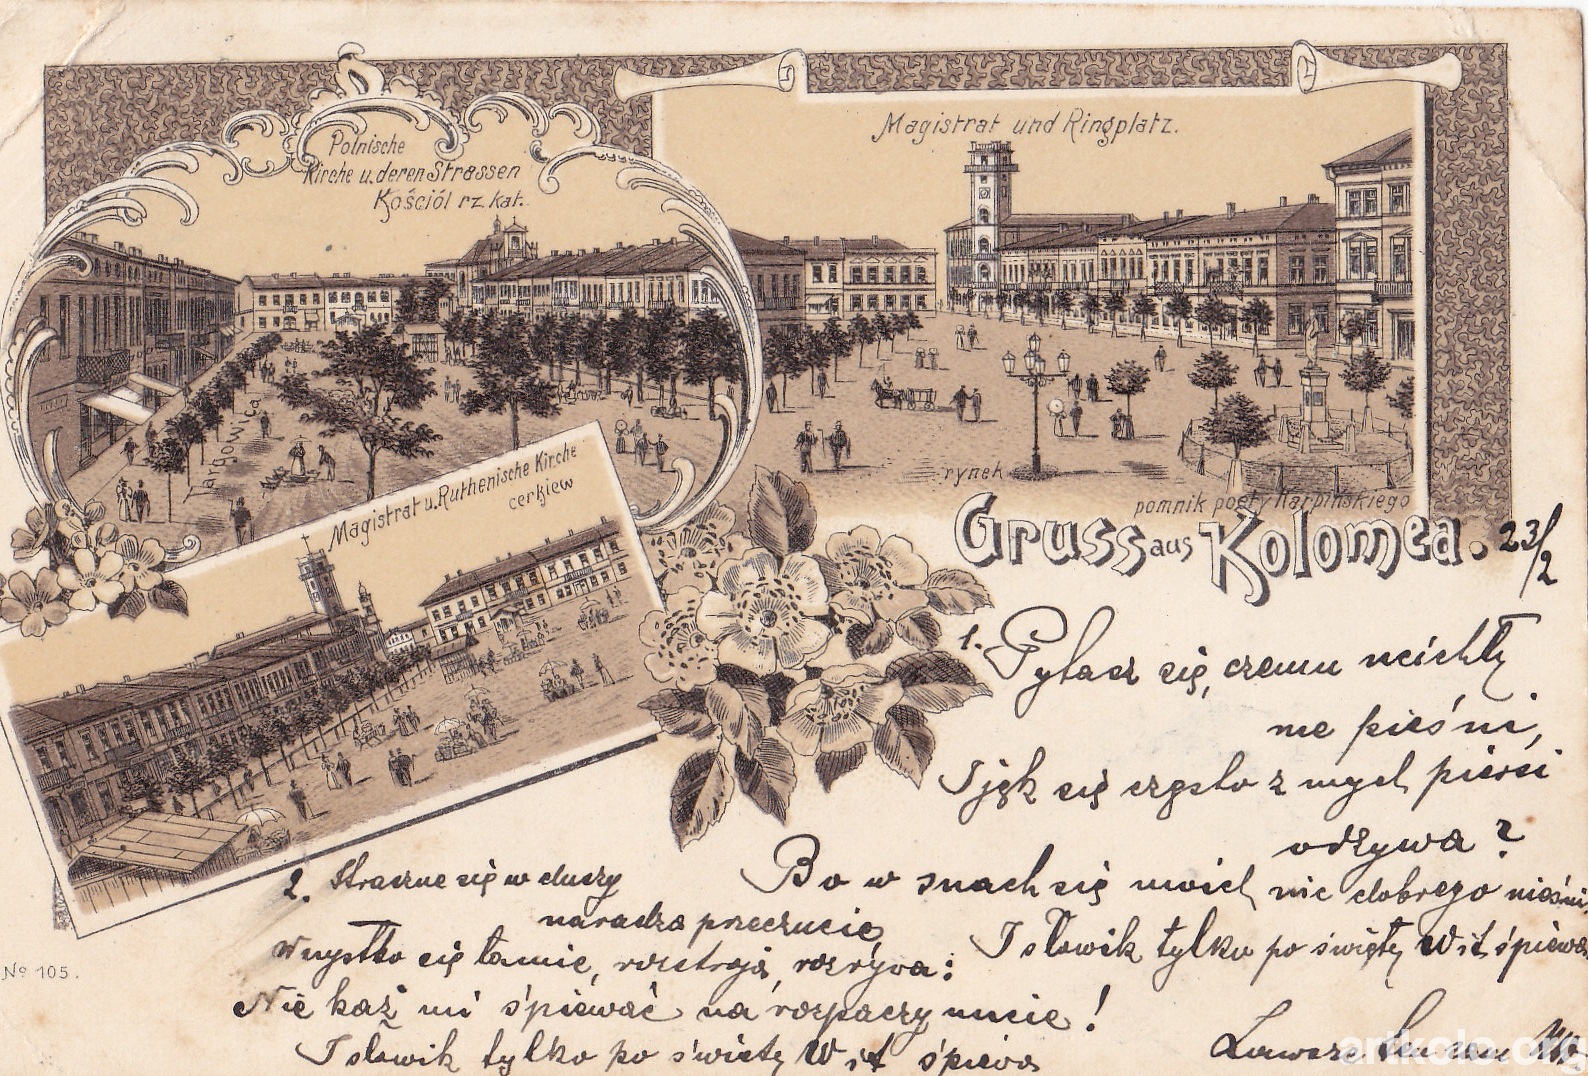 Polnische
Kirche u. deren Strassen
Kościół rz. kat.
Targowica
Magistrat und Ringplatz.
rynek
pomnik poety Karpińskiego
Magistrat u. Ruthenische Kirche
cerkiew
Gruss aus Kolomea.
23/2
1. Pytasz się, czemu ucichły
me pieśni,
I jęk się często z mych piersi
odzywa?
Bo w snach się moich nic dobrego nie śni,
I słowik tylko po święty Wit śpiewa
2. Straszne się w duszy
naradza przeczucie,
Wszystko się łamie, rozstraja, rozrywa:
Nie każ mi śpiewać na rozpaczy nucie!
I słowik tylko po święty Wit śpiewa
No 105.
artkolo.org